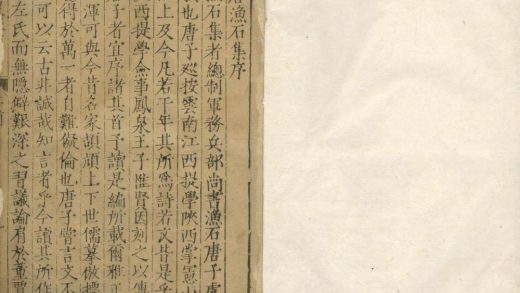 唐漁石集序
漁石集者總制軍務兵部尚書漁石唐子
也唐子巡按雲南江西提學陝西掌憲山
上及今凡若干年其所為詩若文皆是
西提學僉事鳳泉王子惟賢因刻之以傳
子者宜序諸其首予讀是編所載爾雅
渾可與今昔名家頡頏上下世儒摹倣標
得於萬一者自難儗倫也唐子嘗言文不
可以云古非誠哉知言者乎今讀其所作
左氏而無隱僻艱深之習議論有於董賈